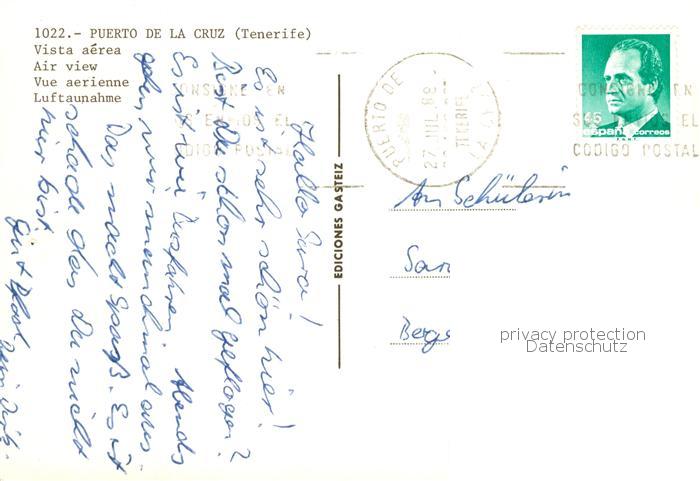 1022.- PUERTO DE LA CRUZ (Tenerife)
Vista aérea
Air view
Vue aerienne
Luftaunahme
Hallo Sara!
Es ist sehr schön hier!
Bist Du schon mal geflogen?
Es ist wie Busfahren. Abends
gehen wir manchmal aus.
Das macht Spaß. Es ist
schade das du nicht
hier bist.
EDICIONES GASTEIZ
PUERTO DE LA CRUZ
27 JUL 88
TENERIFE
CONSIGNE EN
SU EN EL
CODIGO POSTAL
CONSIGNE EN
EL
CODIGO POSTAL
45
españa correos
An Schülerin
Sar
Bergs
privacy protection
Datenschutz